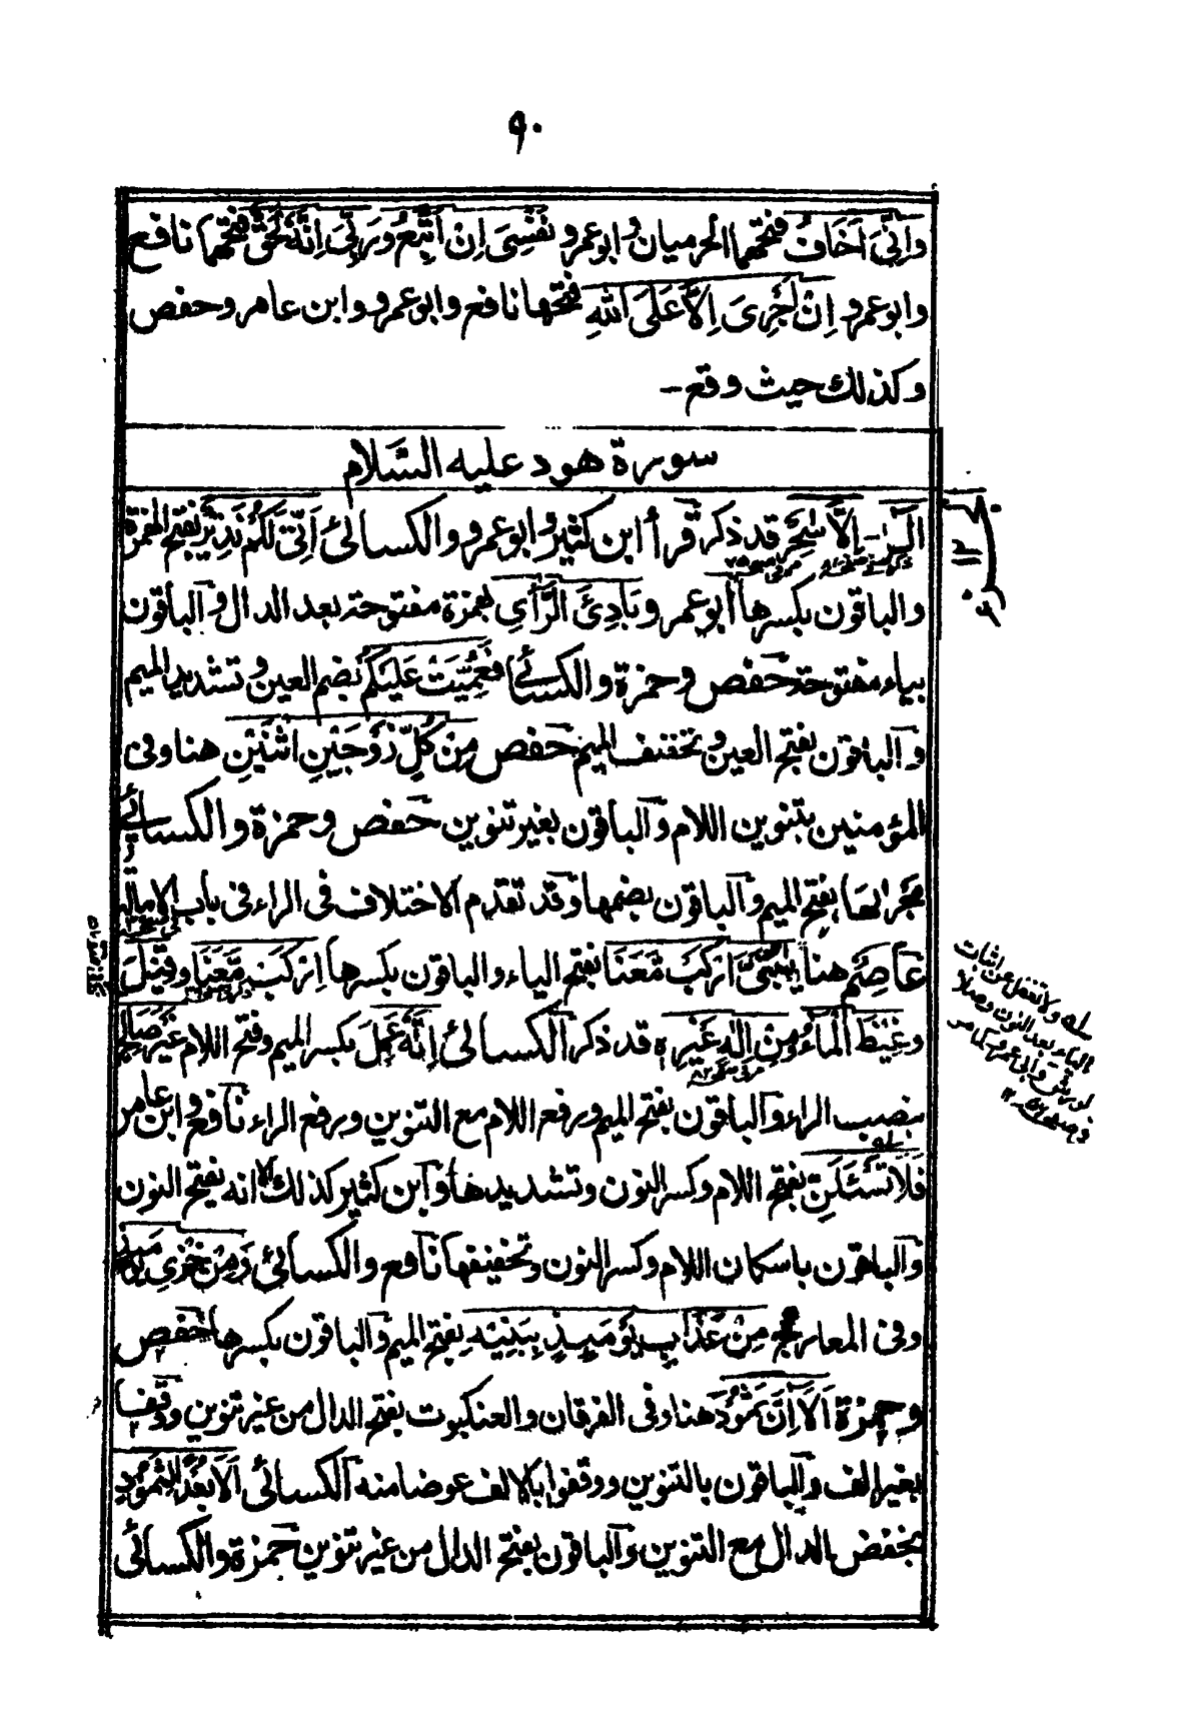 ٩٠
وَاِنِّیَ اَخَافُ فتحهما الحرمیان وابو عمرو ونَفْسِیَ اِنْ اَتَّبِعُ ورَبِّیَ اِنَّهٗ لَحَقٌّ فتحهما نافع
وابو عمرو اِنْ اَجْرِیَ اِلَّا عَلَی اللّٰهِ فتحها نافع وابو عمرو وابن عامر وحفص
وكذلك حیث وقع ـ
سورة هود علیه السّلام
الٓرٰ ـ اِلَّا سٰحِرٌ قد ذكر قرأ ابن كثیر وابو عمرو والكسائی اَنِّیْ لَكُمْ نَذِیْرٌ بفتح الهمزة
والباقون بكسرها ابو عمرو بَادِئَ الرَّأْیِ بهمزة مفتوحة بعد الدال والباقون
بیاء مفتوحة حفص وحمزة والكسائی فَعُمِّیَتْ عَلَیْكُمْ بضم العین وتشدید المیم
والباقون بفتح العین وتخفیف المیم حفص مِنْ كُلٍّ زَوْجَیْنِ اثْنَیْنِ هنا وفی
المؤمنین بتنوین اللام والباقون بغیر تنوین حفص وحمزة والكسائی
مَجْرٰىهَا بفتح المیم والباقون بضمها وقد تقدم الاختلاف فی الراء فی باب الامالة
عاصم هنا یٰبُنَیَّ ارْكَبْ مَّعَنَا بفتح الیاء والباقون بكسرها اِرْكَبْ مَّعَنَا وقِیْلَ
وغِیْضَ الْمَآءُ ومِنْ اِلٰهٍ غَیْرِهٖ قد ذكر الكسائی اِنَّهٗ عَمِلَ بكسر المیم وفتح اللام غَیْرَ صَالِحٍ
بنصب الراء والباقون بفتح المیم ورفع اللام مع التنوین ورفع الراء نافع وابن عامر
فَلَا تَسْئَلَنِّ بفتح اللام وكسر النون وتشدیدها وابن كثیر كذلك الا انه بفتح النون
والباقون باسكان اللام وكسر النون وتخفیفها نافع والكسائی وَمِنْ خِزْیِ یَوْمَئِذٍ
وفی المعارج مِنْ عَذَابِ یَوْمَئِذٍ بِبَنِیْهِ بفتح المیم والباقون بكسرها حفص
وحمزة اَلَآ اِنَّ ثَمُوْدَ هنا وفی الفرقان والعنكبوت بفتح الدال من غیر تنوین ووقفا
بغیر الف والباقون بالتنوین ووقفوا بالالف عوضا منه الكسائی اَلَا بُعْدًا لِّثَمُوْدٍ
بخفض الدال مع التنوین والباقون بفتح الدال من غیر تنوین حمزة والكسائی
سله ولا تغفل عن اثبات
الیاء بعد النون وصلا
لورش وابی عمرو كما مر